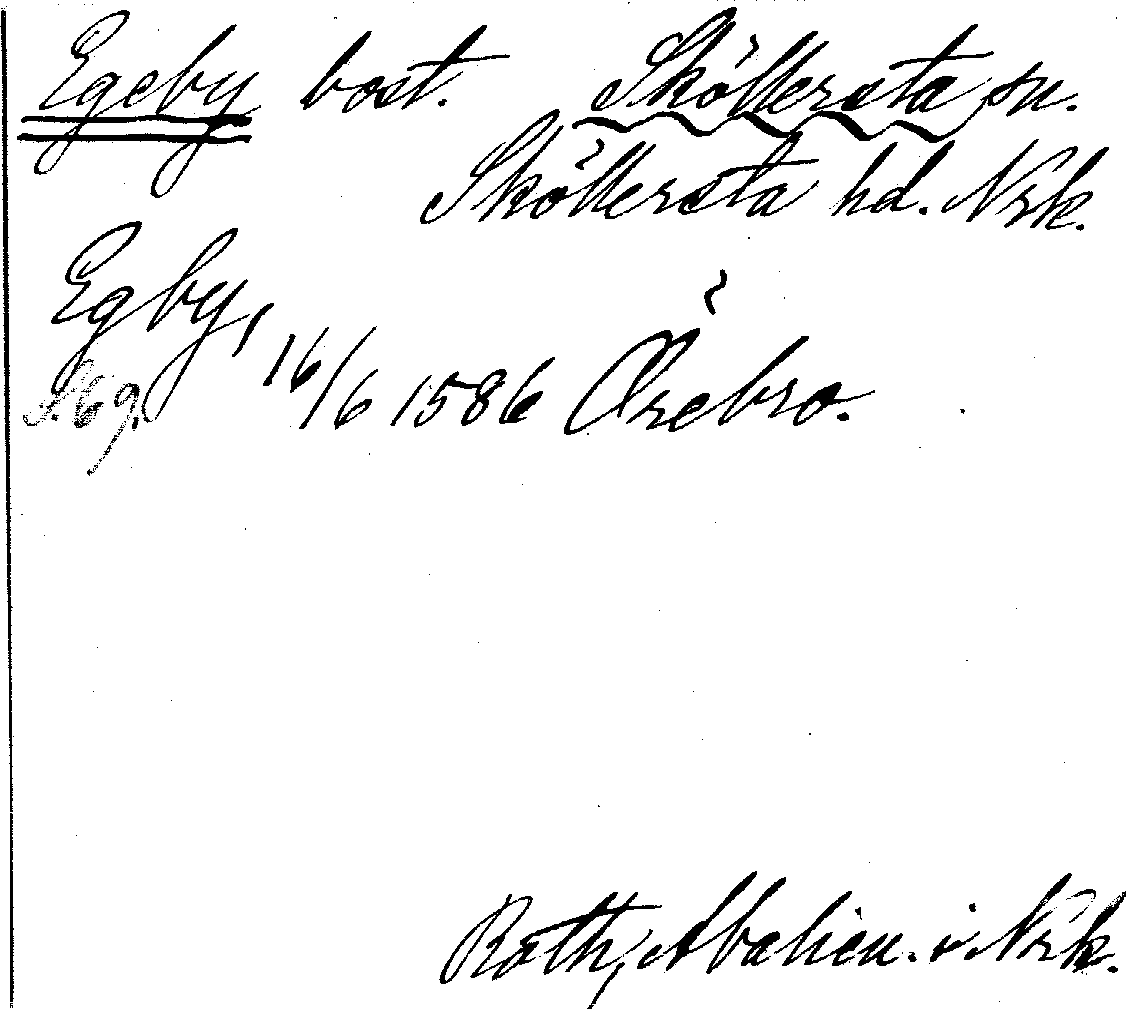 Egeby bost. Sköllersta sn.
Sköllersta hd. Nrk.
Egby, 16/6 1586 Örebro.
S. 69.
Roth, Abalien. i Nrk.